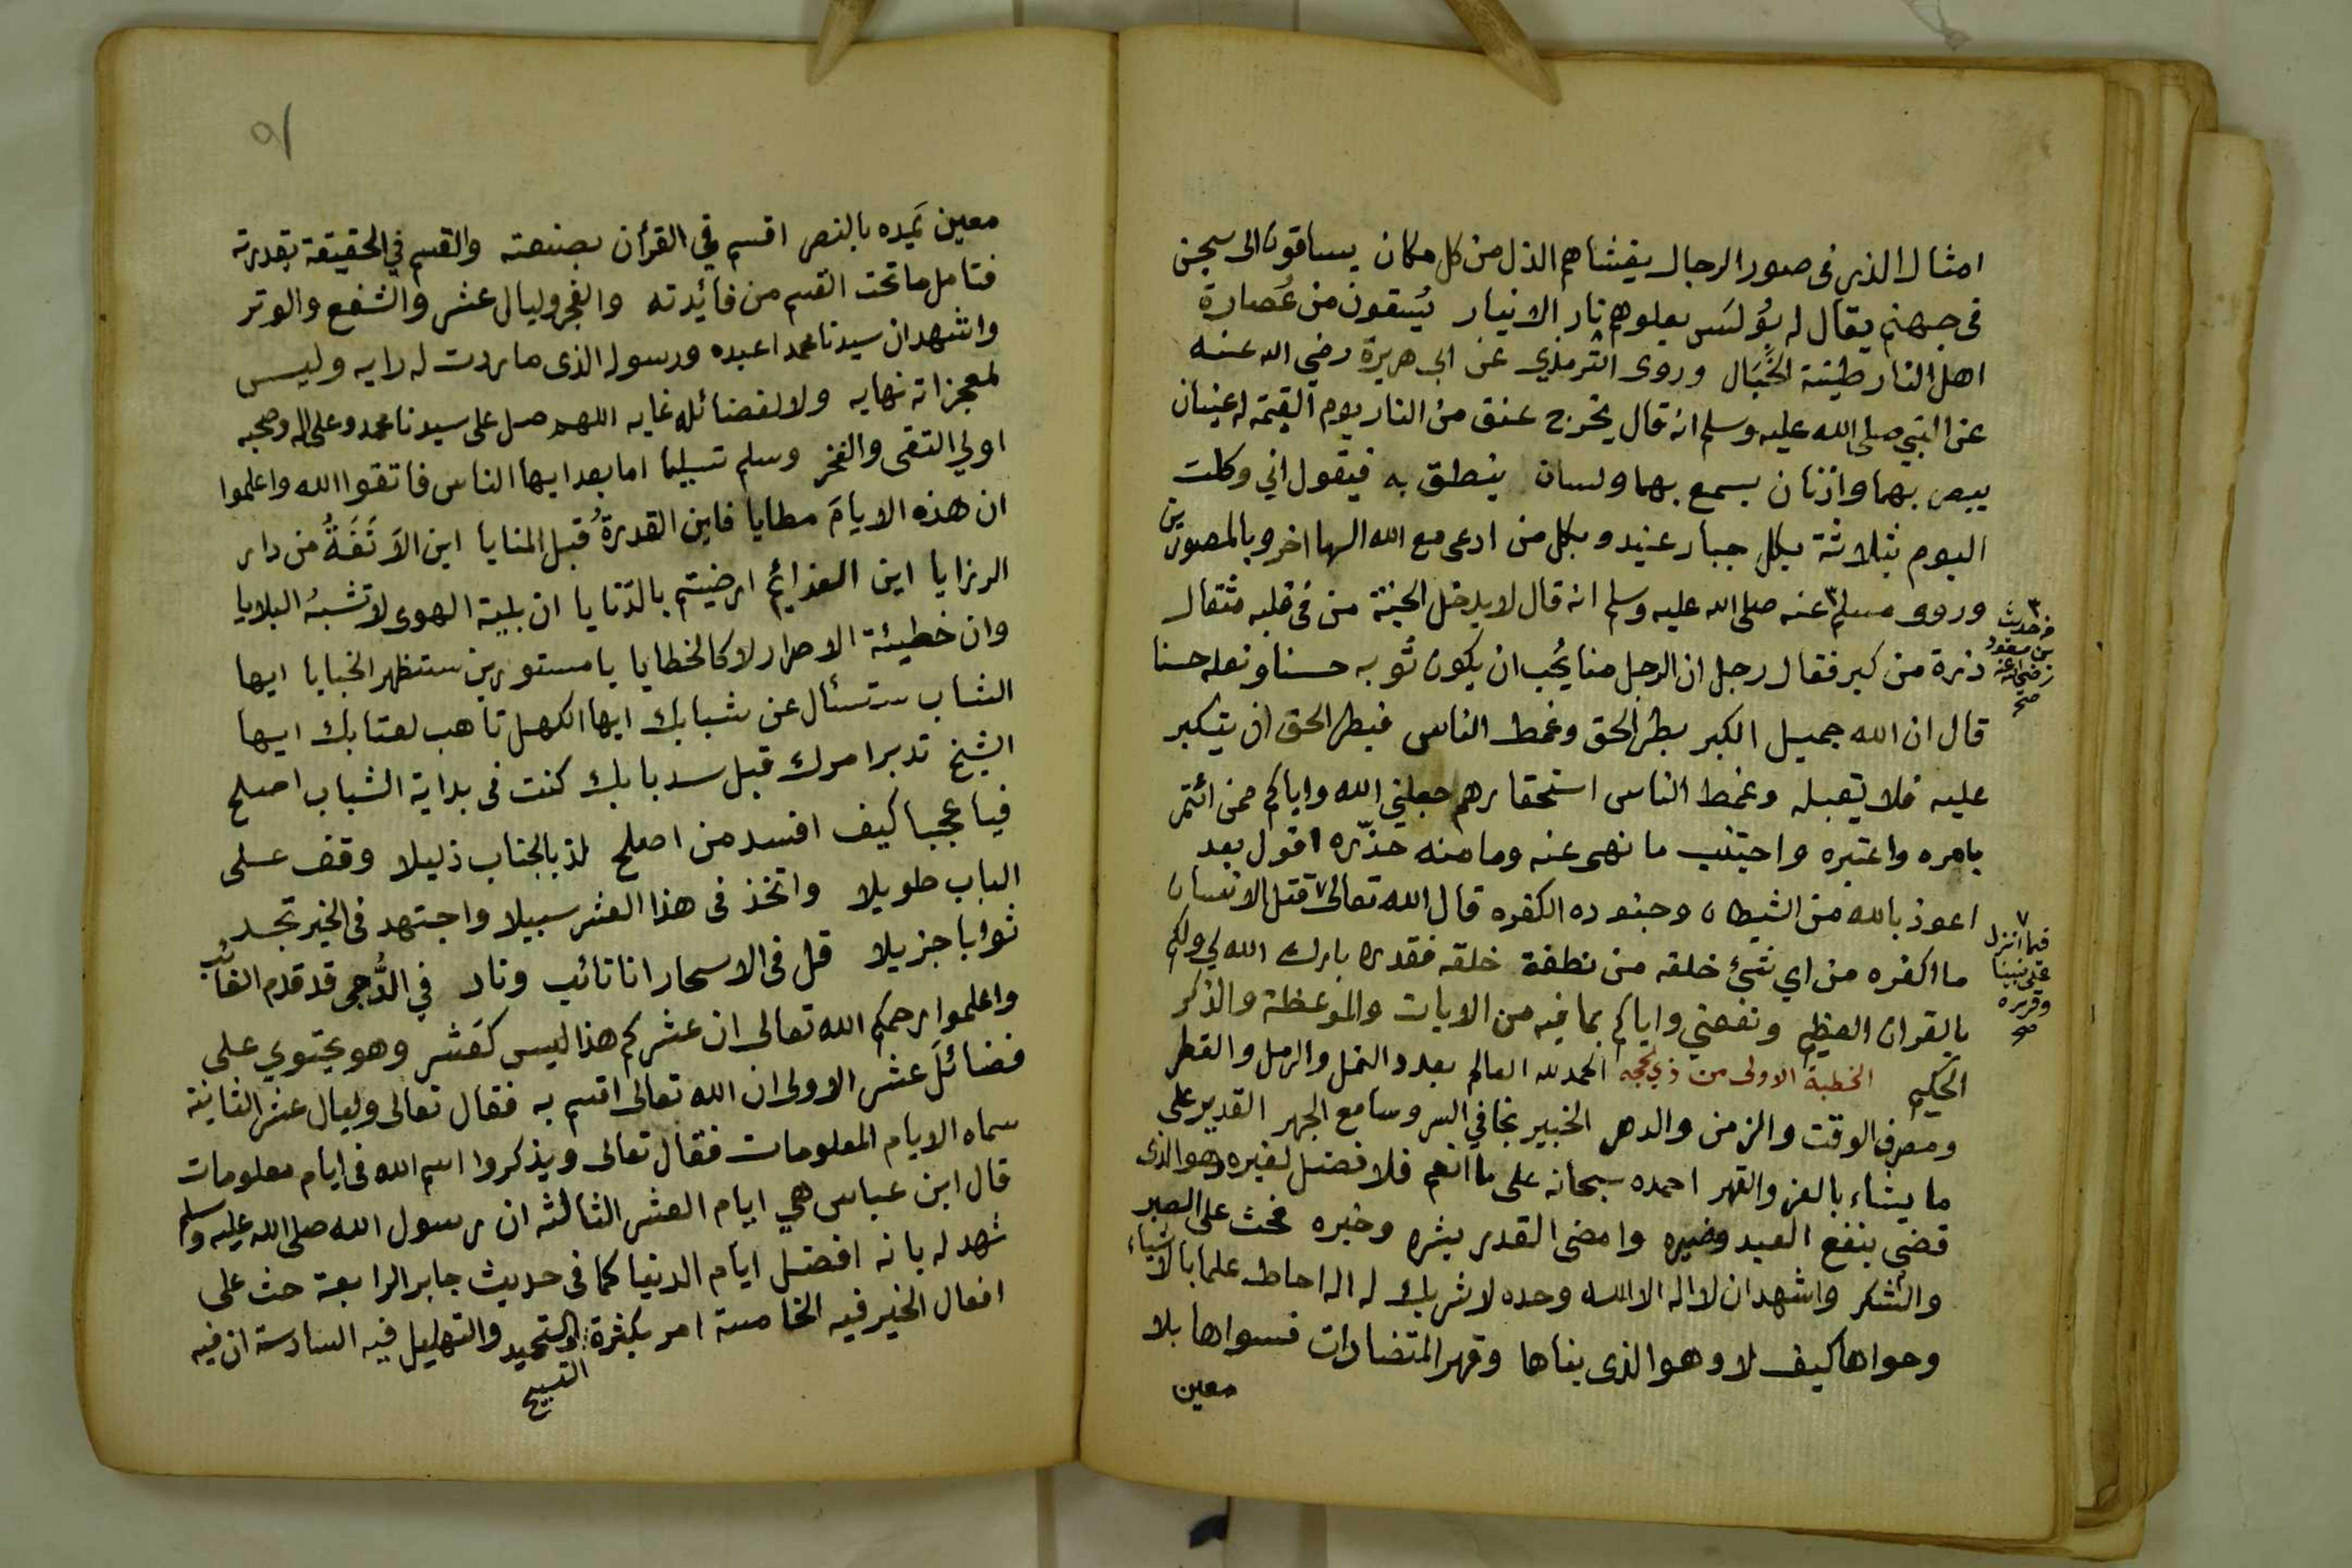 امثال الذر في صور الرجال يغشاهم الذل من كل مكان يساقون الى سجن
في جهنم يقال له بُولَس يعلوهم نار الانيار يُسقون من عُصارة
اهل النار طينة الخَبَال وروى الترمذي عن ابي هريرة رضي الله عنه
عن النبي صلى الله عليه وسلم انه قال يخرج عنق من النار يوم القيمة له عينان
يبصر بهما واذنان يسمع بهما ولسان ينطق به فيقول اني وكلت
اليوم بثلاثة بكل جبار عنيد وبكل من ادعى مع الله الها اخر وبالمصورين
وروى مسلم ٣ عنه صلى الله عليه وسلم انه قال لا يدخل الجنة من في قلبه مثقال
ذرة من كبر فقال رجل ان الرجل منا يُحب ان يكون ثوبه حسنا ونعله حسنا
قال ان الله جميل الكبر بطر الحق وغمط الناس فبطر الحق ان يتكبر
عليه فلا يقبله وغمط الناس استحقارهم جعلني الله واياكم ممن ائتمر
بامره واعتبره واجتنب ما نهى عنه وما منه حذّره اقول بعد
اعوذ بالله من الشيطان وجنوده الكفره قال الله تعالى ٧ قتل الانسان
ما اكفره من اي شئ خلقه من نطفة خلقه فقدره بارك الله لي ولكم
بالقران العظيم ونفعني واياكم بما فيه من الايات والموعظة والذكر
الحكيم الخطبة الاولى من ذي لحجه الحمد لله العالم بعدد النمل والرمل والقطر
ومصرف الوقت والزمن والدهر الخبير بخافي السر وسامع الجهر القدير على
ما يشاء بالعز والقهر احمده سبحانه على ما انعم فلا فضل لغيره وهو الذى
قضى بنفع العبد وضيره وامضى القدر بشره وخيره فحث على الصبر
والشكر واشهد ان لا اله الا الله وحده لا شريك له اله احاط علما بالاشياء
وحواها كيف لا وهو الذى بناها وقهر المتضادات فسواها بلا
معين
٣ من حديث
بن مسعود
رضي الله عنه
صح
٧
فيما انزل
على نبينا
وقرره
صح
معين يَمِده بالنصر اقسم في القرأن بصنعته والقسم في الحقيقة بقدرته
فتامل ما تحت القسم من فائدته والفجر وليال عشر والشفع والوتر
واشهد ان سيدنا محمدا عبده ورسوله الذى ما ردت له رايه وليس
لمعجزاته نهايه ولا لفضائله غايه اللهم صل على سيدنا محمد وعلى اله وصحبه
اولي التقى والفخر وسلم تسليما اما بعد ايها الناس فاتقوا الله واعلموا
ان هذه الايامَ مطايا فاين القدرةُ قبل المنايا اين الاَنَفَةُ من دار
الرزايا اين العزائم ارضيتم بالدّنايا ان بلية الهوى لا تشبهُ البلايا
وان خطيئة الاصرار لا كالخطايا يا مستورين ستظهر الخبايا ايها
الشاب ستسئال عن شبابك ايها الكهل تاهب لعتابك ايها
الشيخ تدبر امرك قبل سد بابك كنت في بداية الشباب اصلح
فيا عجبا كيف افسد من اصلح لذ بالجناب ذليلا وقف على
الباب طويلا واتخذ في هذا العشر سبيلا واجتهد في الخير تجد
ثوابا جزيلا قل في الاسحار انا تائب وناد في الدُّجى قد قدم الغائب
واعلموا رحمكم الله تعالى ان عشركم هذا ليس كعَشر وهو يحتوي على
فضائلَ عشر الاولى ان الله تعالى اقسم به فقال تعالى وليال عشر الثانية
سماه الايام المعلومات فقال تعالى ويذكروا اسم الله في ايام معلومات
قال ابن عباس هي ايام العشر الثالثه ان رسول الله صلى الله عليه وسلم
شهد له بانه افضل ايام الدنيا كما في حديث جابر الرابعة حث على
افعال الخير فيه الخامسة امر بكثرة والتحميد والتهليل فيه السادسة ان فيه
التسبيح